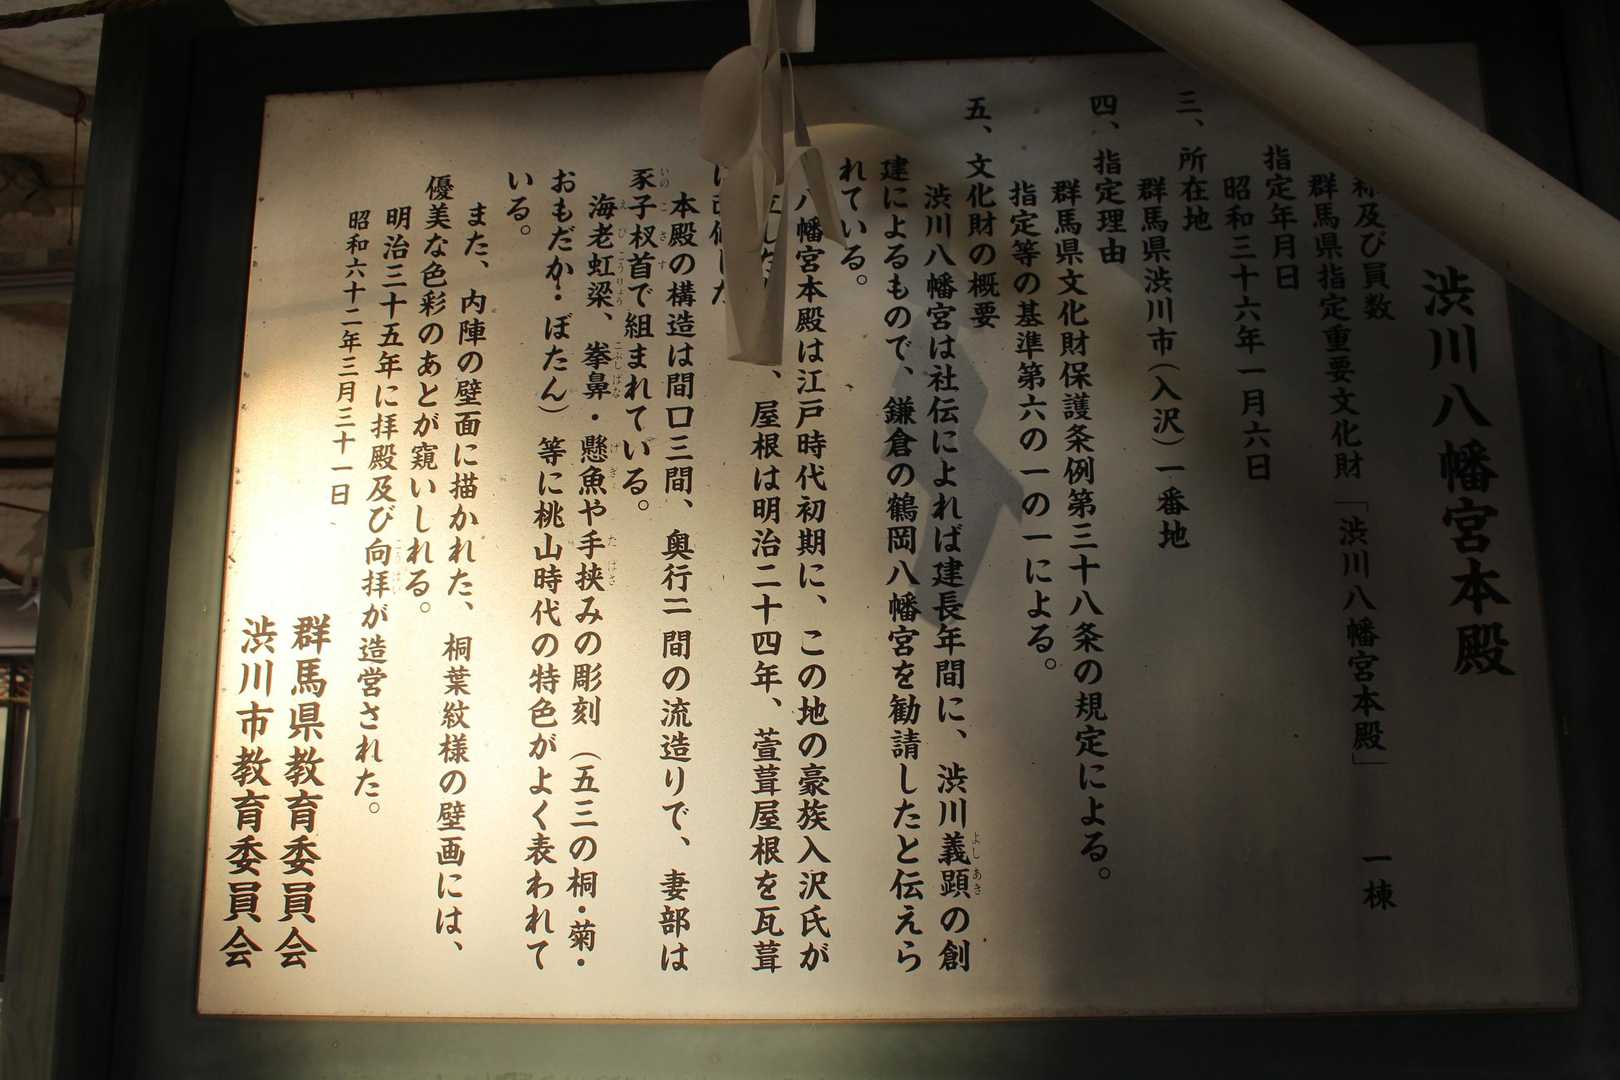 渋川八幡宮本殿
称及び員数
群馬県指定重要文化財「渋川八幡宮本殿」 一棟
指定年月日
昭和三十六年一月六日
三、所在地
群馬県渋川市(入沢)一番地
四、指定理由
群馬県文化財保護条例第三十八条の規定による。
指定等の基準第六の一の一による。
五、文化財の概要
渋川八幡宮は社伝によれば建長年間に、渋川義顕の創
建によるもので、鎌倉の鶴岡八幡宮を勧請したと伝えら
れている。
八幡宮本殿は江戸時代初期に、この地の豪族入沢氏が
、屋根は明治二十四年、萱葺屋根を瓦葺
に改修した
本殿の構造は間口三間、奥行二間の流造りで、妻部は
豕子杈首で組まれている。
海老虹梁、拳鼻・懸魚や手挟みの彫刻(五三の桐・菊・
おもだか・ぼたん)等に桃山時代の特色がよく表われて
いる。
また、内陣の壁面に描かれた、桐葉紋様の壁画には、
優美な色彩のあとが窺いしれる。
明治三十五年に拝殿及び向拝が造営された。
昭和六十二年三月三十一日
群馬県教育委員会
渋川市教育委員会